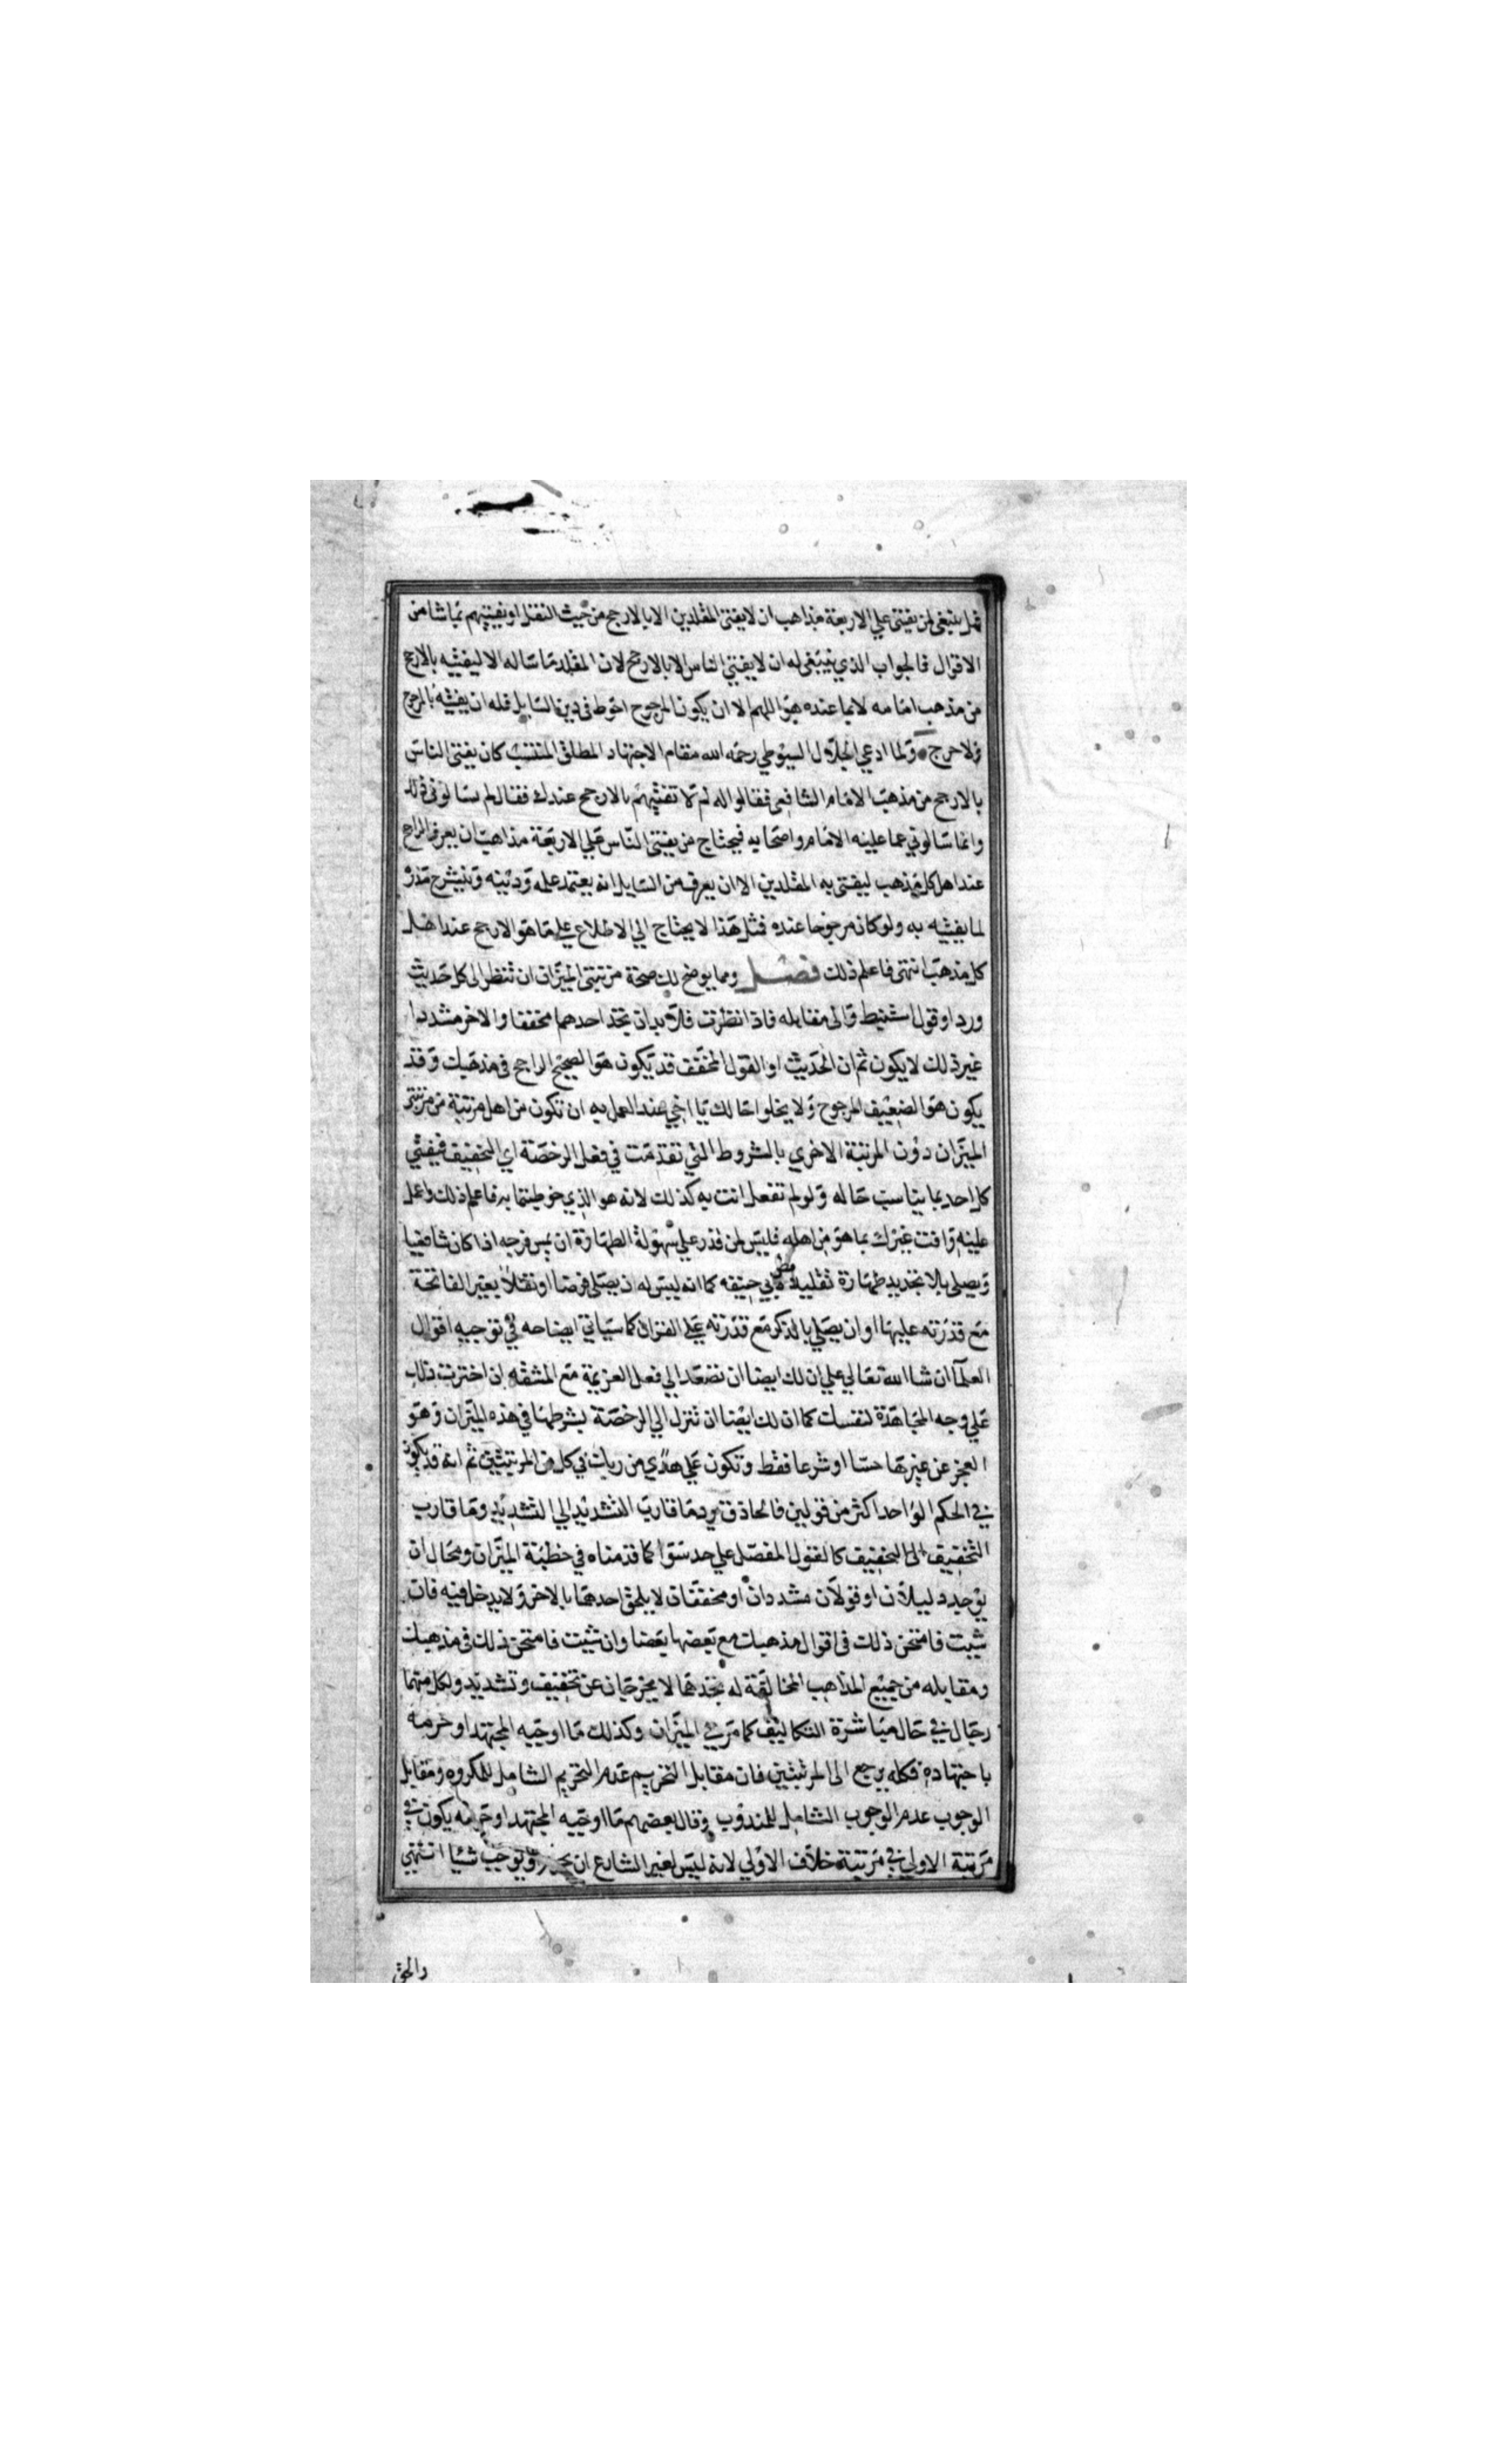 قلينبغى لمن يفتى علي الاربعة مذاهب ان لا يفتى المقلدين الا بالارجح من حيث النقل او يفتيهم بما شا من
الاقوال فالجواب الذي ينبغى له ان لا يفتي الناس الا بالارجح لان المقلد ما ساله الا ليفتيه بالارجح
من مذهب امامه لا بما عنده هو اللهم الا ان يكون المرجوح احوط فى دين السايل فله ان يفتيه بالمرجوح
ولا حرج ولما ادعي الجلال السيوطي رحمه الله مقام الاجتهاد المطلق المنتسب كان يفتى الناس
بالارجح من مذهب الامام الشافعى فقالوا له لم لا تفتيهم بالارجح عندك فقال لم يسالونى ذلك
وانما سالوني عما عليه الامام واصحابه فيحتاج من يفتى الناس علي الاربعة مذاهب ان يعرف الراجح
عند اهل كل مذهب ليفتى به المقلدين الا ان يعرف من السايل انه يعتمد علمه ودينه وينشرح صدره
لما يفتيه به ولو كان مرجوحا عنده فمثل هذا لا يحتاج الي الاطلاع علي ما هو الارجح عند اهل
كل مذهب انتهى فاعلم ذلك فصل ومما يوضح لك صحة مرتبتى الميزان ان تنظر الى كل حديث
ورد او قول استنبط والى مقابله فاذا نظرت فلا بد ان تجد احدهما مخففا والاخر مشددا
غير ذلك لا يكون ثم ان الحديث او القول المخفف قد يكون هو الصحيح الراجح فى مذهبك وقد
يكون هو الضعيف المرجوح ولا يخلوا حالك يا اخي عند العمل به ان تكون من اهل مرتبة من مرتبتى
الميزان دون المرتبة الاخري بالشروط التي تقدمت في فعل الرخصة اي التخفيف فيفتي
كل احد بما يناسب حاله ولو لم تفعل انت به كذلك لانه هو الذي خوطبتما به فاعلم ذلك واعمل
عليه وافت غيرك بما هو من اهله فليس لمن قدر علي سهولة الطهارة ان يمس فرجه اذا كان شافعيا
ويصلى بلا تجديد طهارة تقليدا لابي حنيفه كما انه ليس له ان يصلى فرضا او نفلا بغير الفاتحة
مع قدرته عليها او ان يصلي بالذكر مع قدرته علي القران كما سياتي ايضاحه في توجيه اقوال
العلما ان شا الله تعالي علي ان لك ايضا ان تصعد الي فعل العزيمة مع المشقه ان اخترت ذلك
علي وجه المجاهدة لنفسك كما ان لك ايضا ان تنزل الي الرخصة بشرطها في هذه الميزان وهو
العجز عن غيرها حسا او شرعا فقط وتكون علي هدي من ربك في كل من المرتبتين ثم انه قد يكون
في الحكم الواحد اكثر من قولين فالحاذق يرد ما قارب التشديد الي التشديد وما قارب
التخفيف الى التخفيف كالقول المفصل علي حد سوا كما قدمناه في خطبة الميزان ومحال ان
يوجد دليلان او قولان مشددان او مخففان لا يلحق احدهما بالاخر ولا يدخل فيه فان
شيت فامتحن ذلك فى اقوال مذهبك مع بعضها بعضا وان شيت فامتحن ذلك فى مذهبك
ومقابله من جميع المذاهب المخالفة له تجدهما لا يخرجان عن تخفيف وتشديد ولكل منهما
رجال في حال مباشرة التكاليف كما مر في الميزان وكذلك ما اوجبه المجتهد او حرمه
باجتهاده فكله يرجع الى المرتبتين فان مقابل التحريم عدم التحريم الشامل للمكروه ومقابل
الوجوب عدم الوجوب الشامل للمندوب وقال بعضهم ما اوجبه المجتهد او حرمه يكون في
مرتبة الاولي في مرتبة خلاف الاولي لانه ليس لغير الشارع ان يحرم ويوجب شيا انتهي
والحق